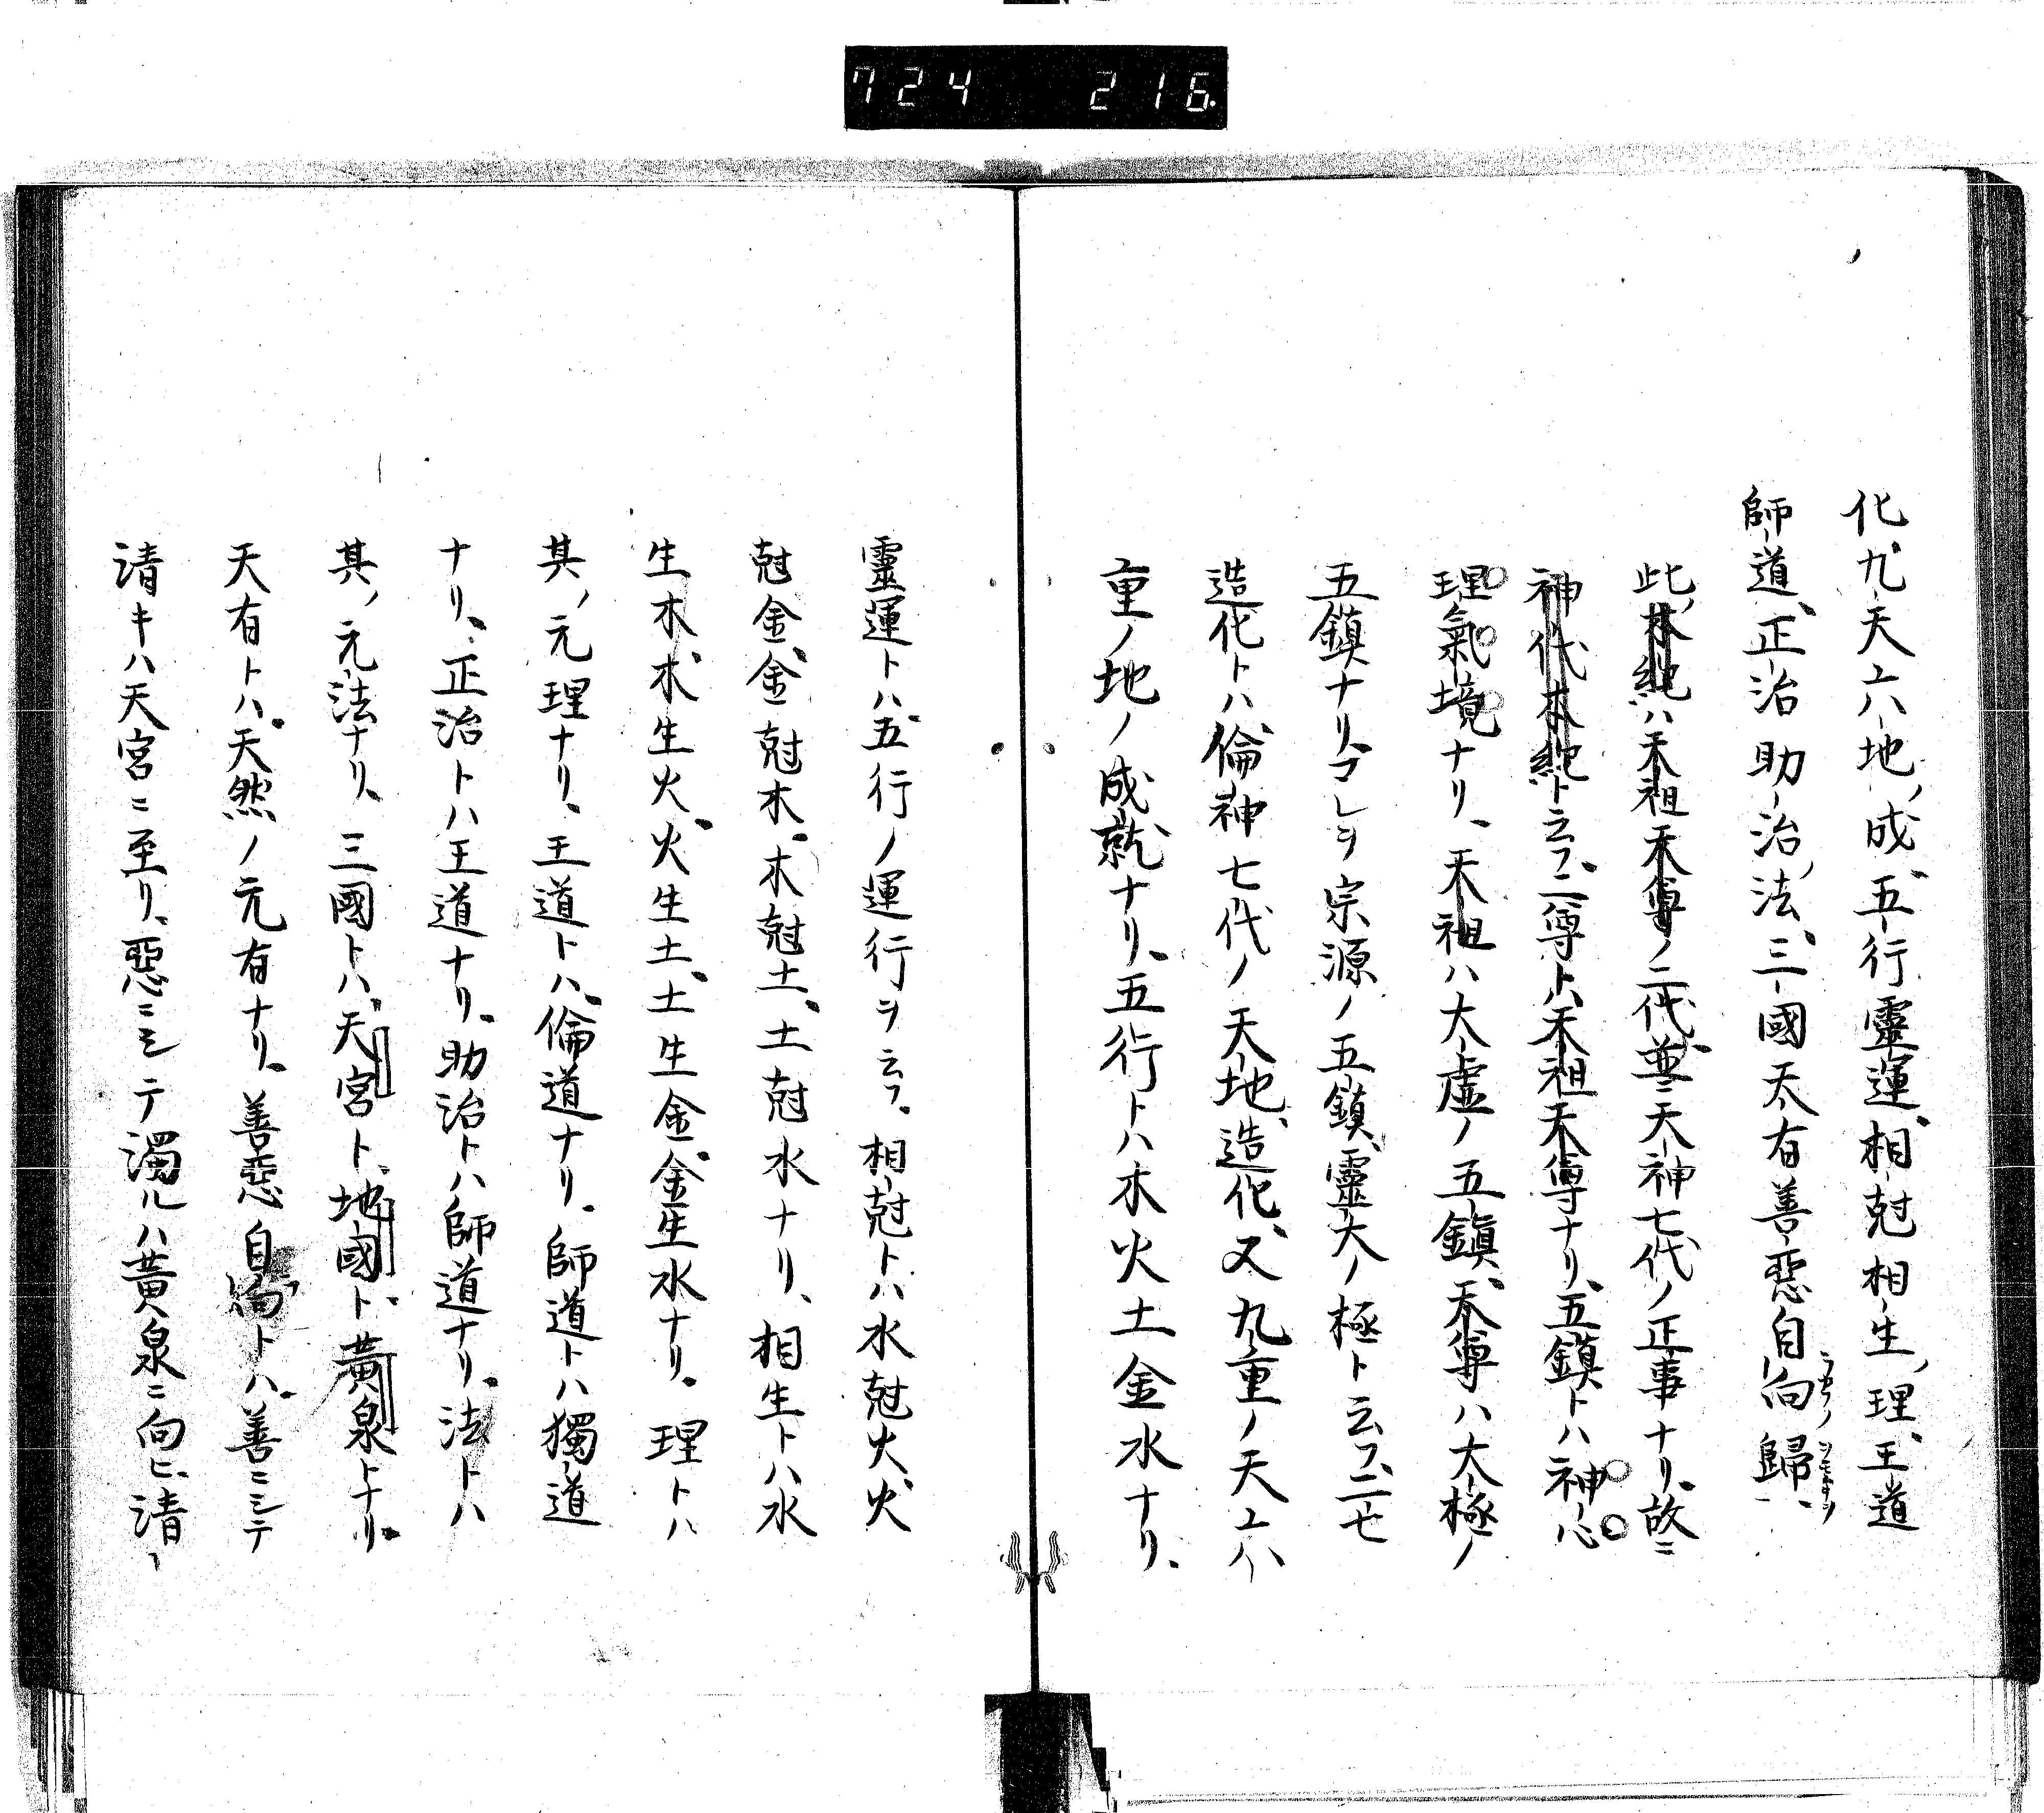 724 216
化九天六地ノ成五行靈運相尅相生ノ理王道
師道正治助治ノ法三國天有善惡自向歸
此ノ本紀ハ天祖天尊ノ二代並ニ天神七代ノ正事ナリ故ニ
神代本紀ト云フ二尊トハ天祖天尊ナリ五鎮トハ神心
理氣境ナリ天祖ハ大虚ノ五鎮天尊ハ大極ノ
五鎮ナリコレヲ宗源ノ五鎮靈大ノ極ト云フ二七
造化トハ倫神七代ノ天地造化又九重ノ天六
重ノ地ノ成就ナリ五行トハ木火土金水ナリ
靈運トハ五行ノ運行ヲ云フ相尅トハ水尅火火
尅金金尅木木尅土土尅水ナリ相生トハ水
生木木生火火生土土生金金生水ナリ理トハ
其ノ元理ナリ王道トハ倫道ナリ師道トハ獨道
ナリ正治トハ王道ナリ助治トハ師道ナリ法トハ
其ノ元法ナリ三國トハ天宮ト地國ト黄泉トナリ
天有トハ天然ノ元有ナリ善惡自向トハ善ニシテ
清キハ天宮ニ至リ惡ニシテ濁ルハ黄泉ニ向ヒ清